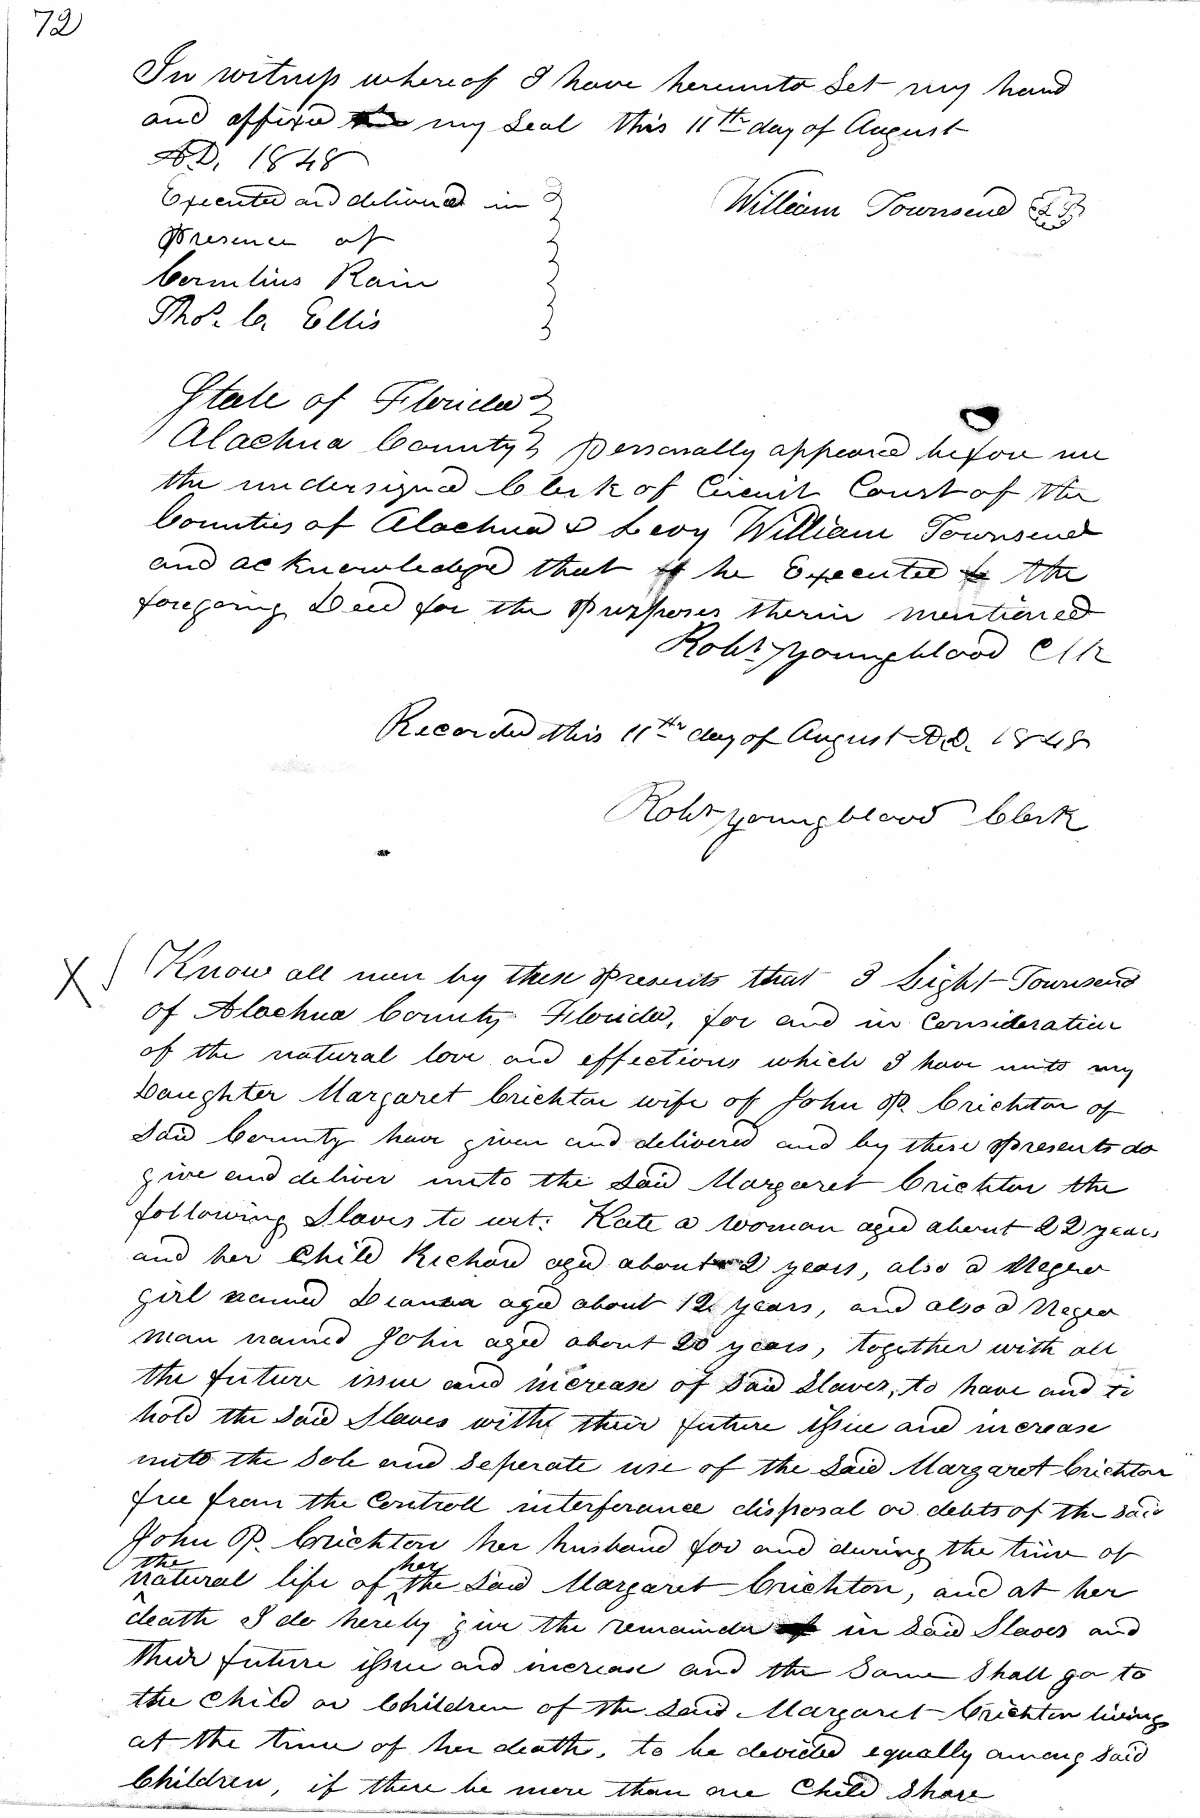 72
In witness whereof I have hereunto Set my hand
and affixed my Seal this 11th day of August
A.D. 1848
Executed and delivered in
presence of
Cornelius Rain
Thos. C. Ellis
William Townsend
State of Florida
Alachua County personally appeared before me
the undersigned Clerk of Circuit Court of the
Counties of Alachua & Levy William Townsend
and acknowledged that he Executed the
foregoing Deed for the purposes therin mentioned
Robt Youngblood Clk
Recorded this 11th day of August A.D. 1848
Robt Youngblood Clerk
X
Know all men by these presents that I Light Townsend
of Alachua County Florida, for and in consideration
of the natural love and effections which I have unto my
Daughter Margaret Crichton wife of John P. Crichton of
Said County have given and delivered and by these presents do
give and deliver unto the Said Margaret Crichton the
following Slaves to wit: Kate a woman aged about 22 years
and her Child Richard aged about 2 years, also a Negro
girl named Deanna aged about 12 years, and also a Negro
man named John aged about 20 years, together with all
the future issue and increase of Said Slaves, to have and to
hold the Said Slaves with their future issue and increase
unto the Sole and Seperate use of the Said Margaret Crichton
free from the Controll interferance disposal or debts of the Said
John P. Crichton her husband for and during the time of
the natural life of her the Said Margaret Crichton, and at her
death I do hereby give the remainder in Said Slaves and
their future issue and increase and the Same Shall go to
the Child or Children of the Said Margaret Crichton living
at the time of her death, to be devided equally among Said
Children, if there be more than one Child Share